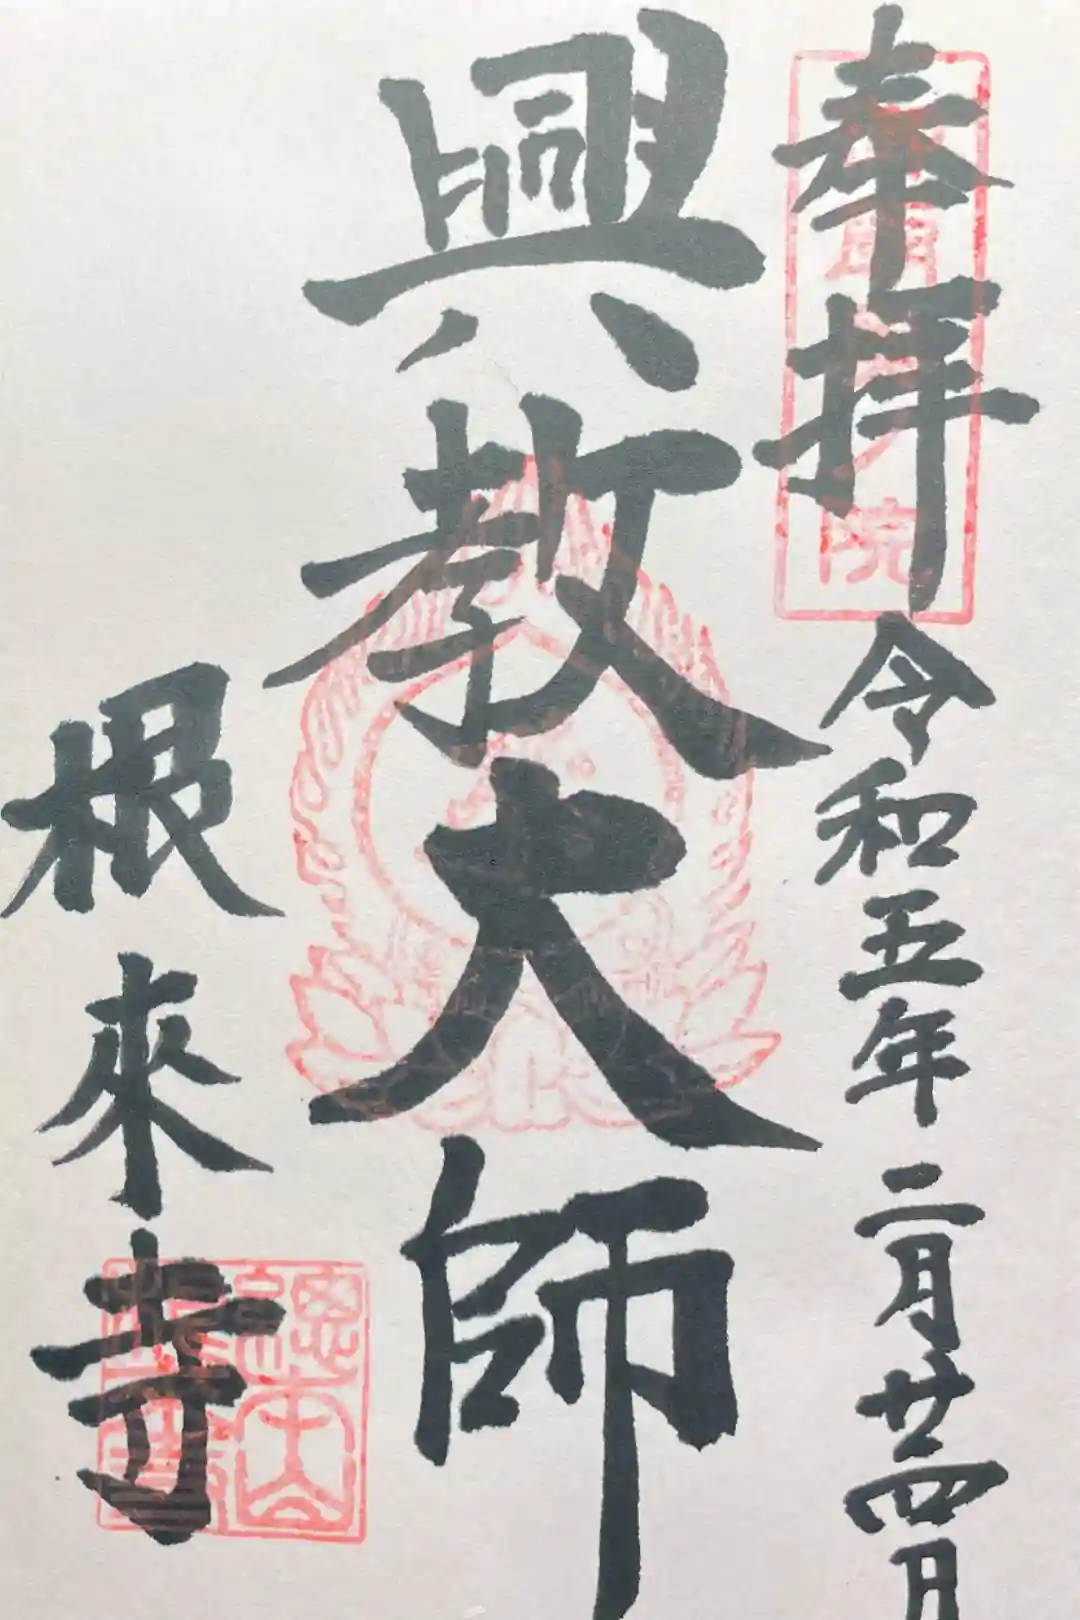 奉拝 令和五年二月廿四日
興教大師
根來寺